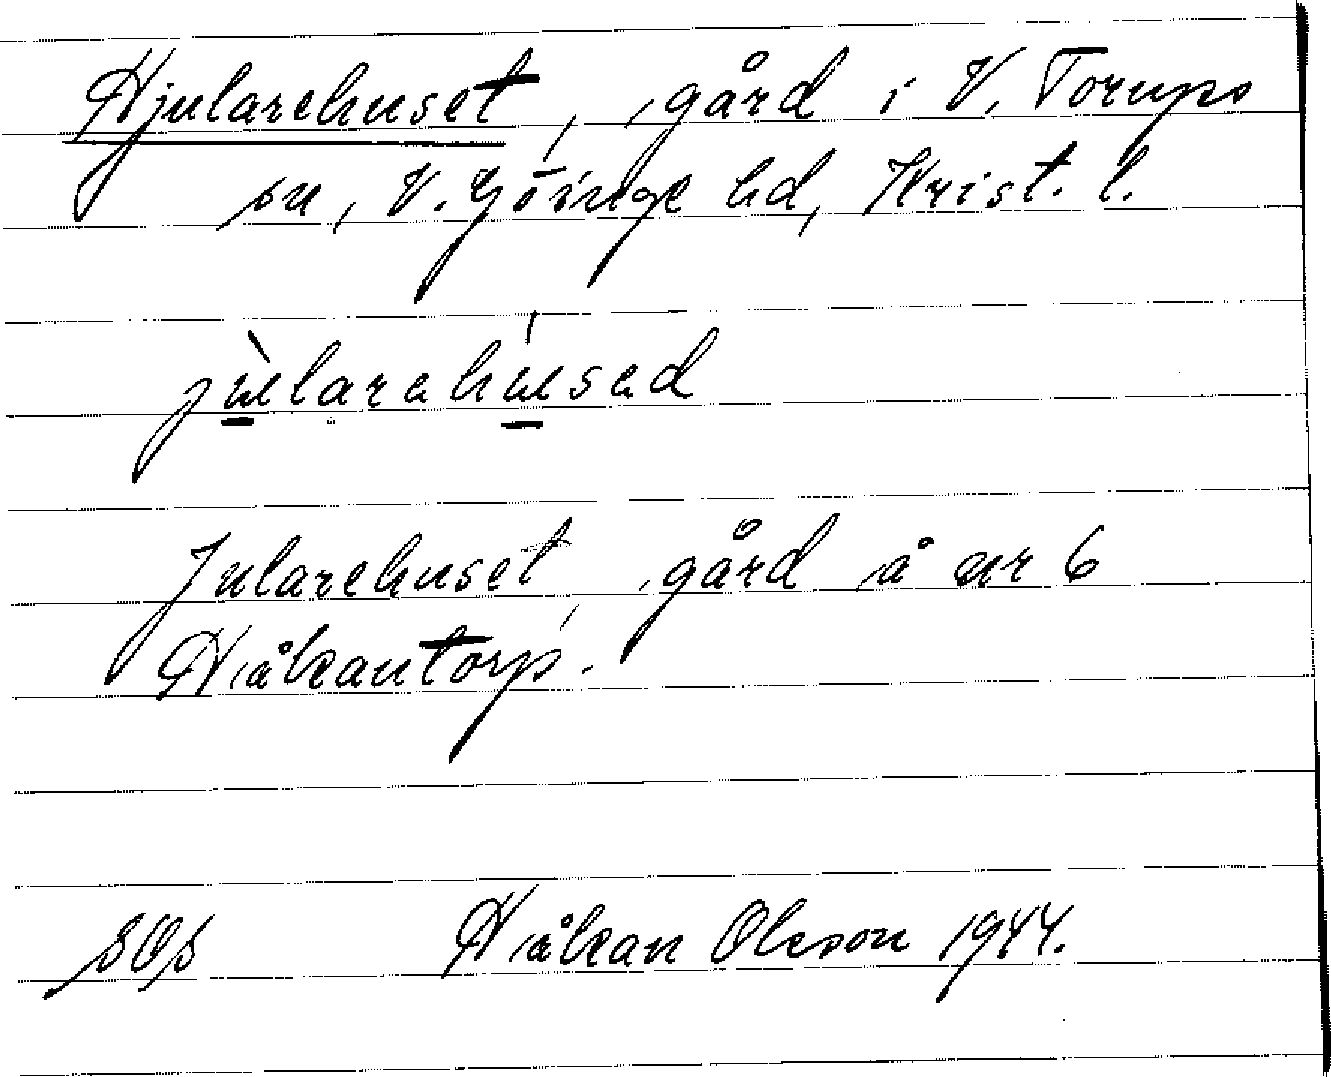 Hjularehuset, gård i V. Torups
sn, V. Göinge hd, Krist. l.
jùlarehúsed
Jularehuset, gård å nr 6
Håkantorp.
SOS Håkan Olsson 1944.